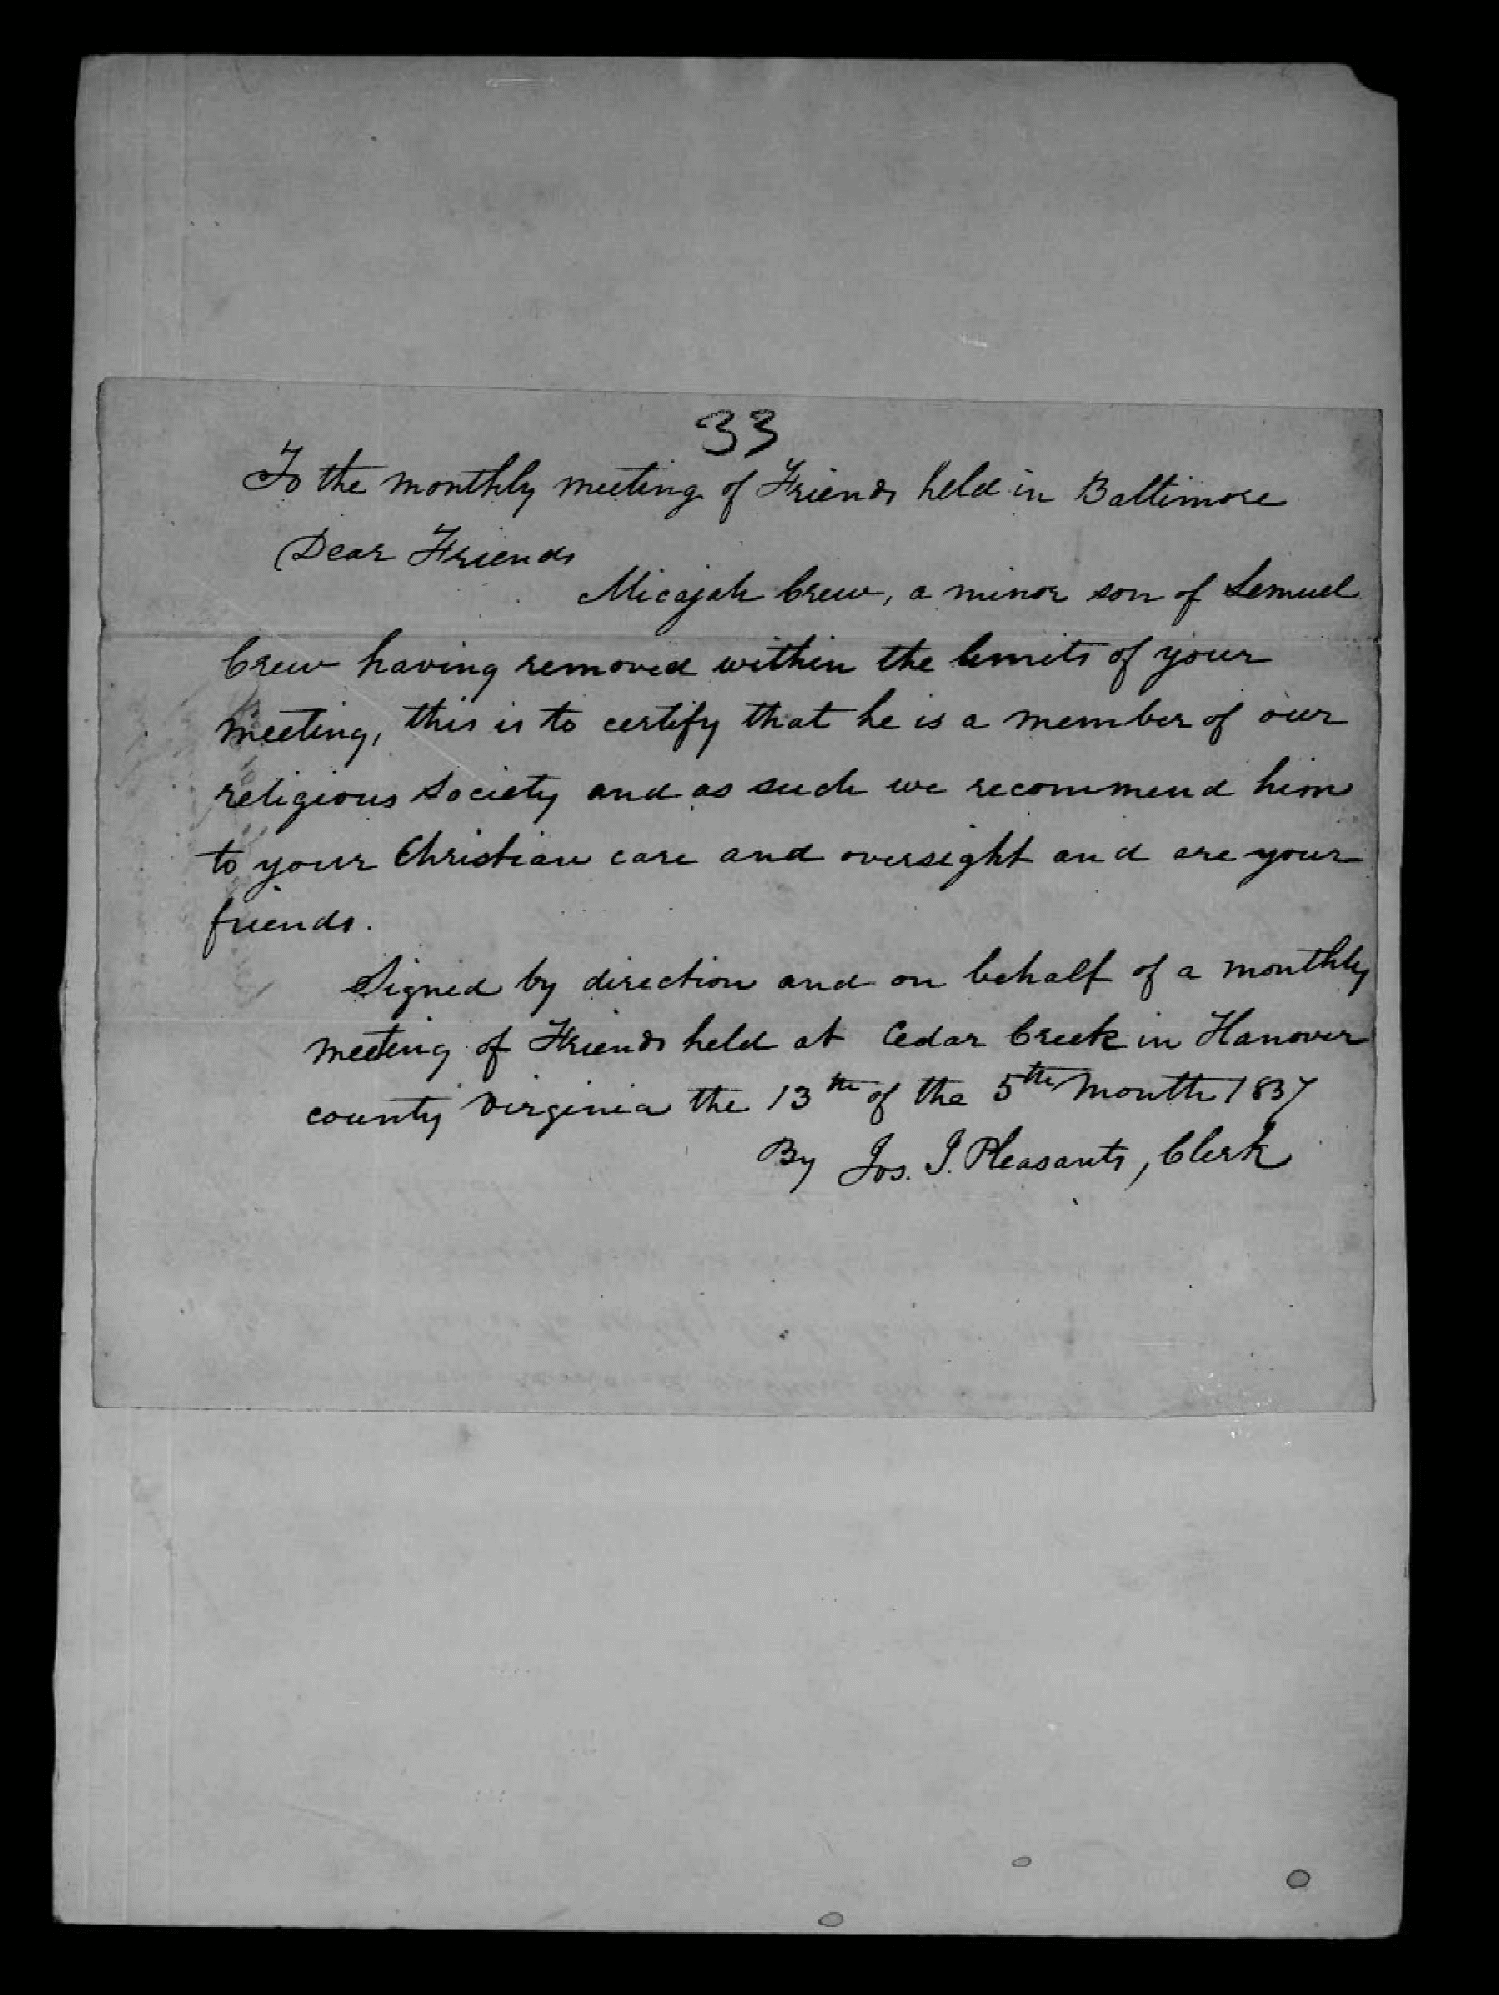 33
To the monthly meeting of Friends held in Baltimore
Dear Friends
Micajah Crew, a minor son of Lemuel
Crew having removed within the limits of your
meeting, this is to certify that he is a member of our
religious Society and as such we recommend him
to your Christian care and oversight and are your
friends.
Signed by direction and on behalf of a monthly
meeting of Friends held at Cedar Creek in Hanover
county Virginia the 13th of the 5th month 1837
By Jos. J. Pleasants, Clerk